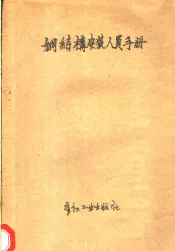 鋼結構安裝人員手册
重工业出版社